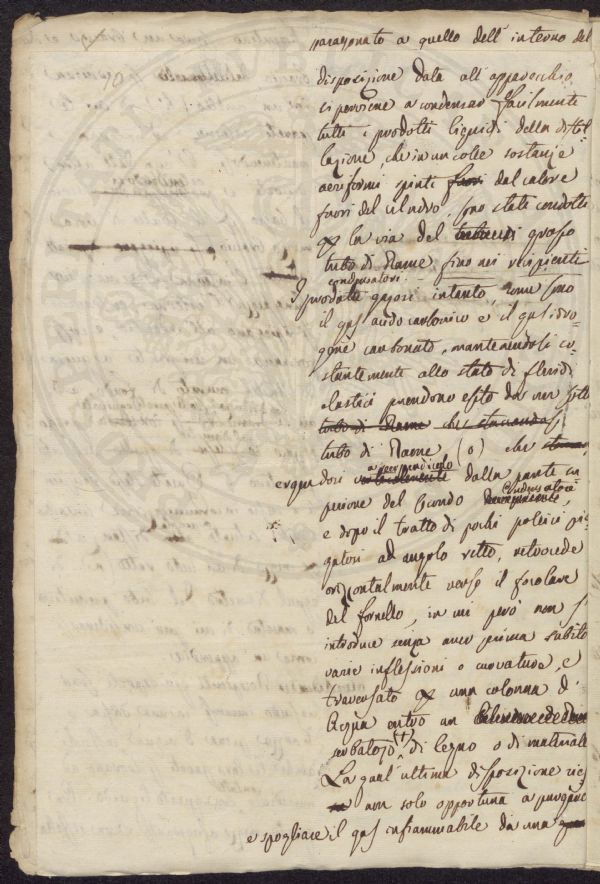 paragonato a quello dell'interno del
disposizione data all'apparecchio
si perviene a condensar facilmente
tutti i prodotti liquidi della distil-
lazione, che in un colle sostanze
aeriformi spinti fuori dal calore
fuori del cilindro, sono state condotte
per la via del grosso
tubo di Rame fino nei recipienti
condensatori.
I prodotti gasosi intanto, come sono
il gas acido carbonico e il gas idro-
gene carbonato, mantenendosi co-
stantemente allo stato di fluidi
elastici prendono esito da un
tubo di Rame che
tubo di Rame (o) che
ergendosi a perpendicolo dalla parte su
periore del secondo condensatore
e dopo il tratto di pochi pollici pi-
gatosi ad angolo retto, retrocede
orizontalmente verso il focolare
del fornello, in cui però non s
introduce senza aver prima subito
varie inflessioni o curvature, e
traversato per una colonna d'
Acqua entro un
serbatojo (+) di legno o di materiale
La qual'ultima disposizione
non solo opportuna a purgare
e spogliare il gas infiammabile da una